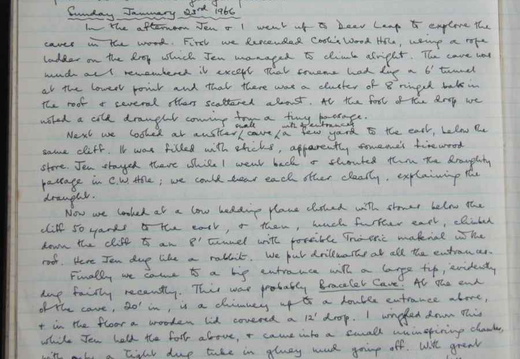 Sunday January 23rd 1966
In the afternoon Jen & I went up to Deer Leap to explore the
caves in the wood. First we descended Cooks Wood Hole, using a rope
ladder on the drop which Jen managed to climb alright. The cave was
much as I remembered it except that someone had dug a 6' tunnel
at the lowest point and that there was a cluster of 8 ringed bats in
the roof & several others scattered about. At the foot of the drop we
noted a cold draught coming from a tiny passage.
Next we looked at another small cave, with two entrances a few yards to the east, below the
same cliff. It was filled with sticks, apparently someone's firewood
store. Jen stayed there while I went back & shouted thro the draughty
passage in C.W. Hole; we could hear each other clearly, explaining the
draught.
Now we looked at a low bedding plane choked with stones below the
cliff 50 yards to the east, & then, much further east, climbed
down the cliff to an 8' tunnel with possible Triassic material in the
roof. Here Jen dug like a rabbit. We put drillmarks at all the entrances.
Finally we came to a big entrance with a large tip, evidently
dug fairly recently. This was probably Bracelet Cave. At the end
of the cave, 20' in, is a chimney up to a double entrance above,
& in the floor a wooden lid covered a 12' drop. I wriggled down this
while Jen held the torch above, & came into a small uninspiring chamber,
with a tight dug tube in gluey mud going off. With great